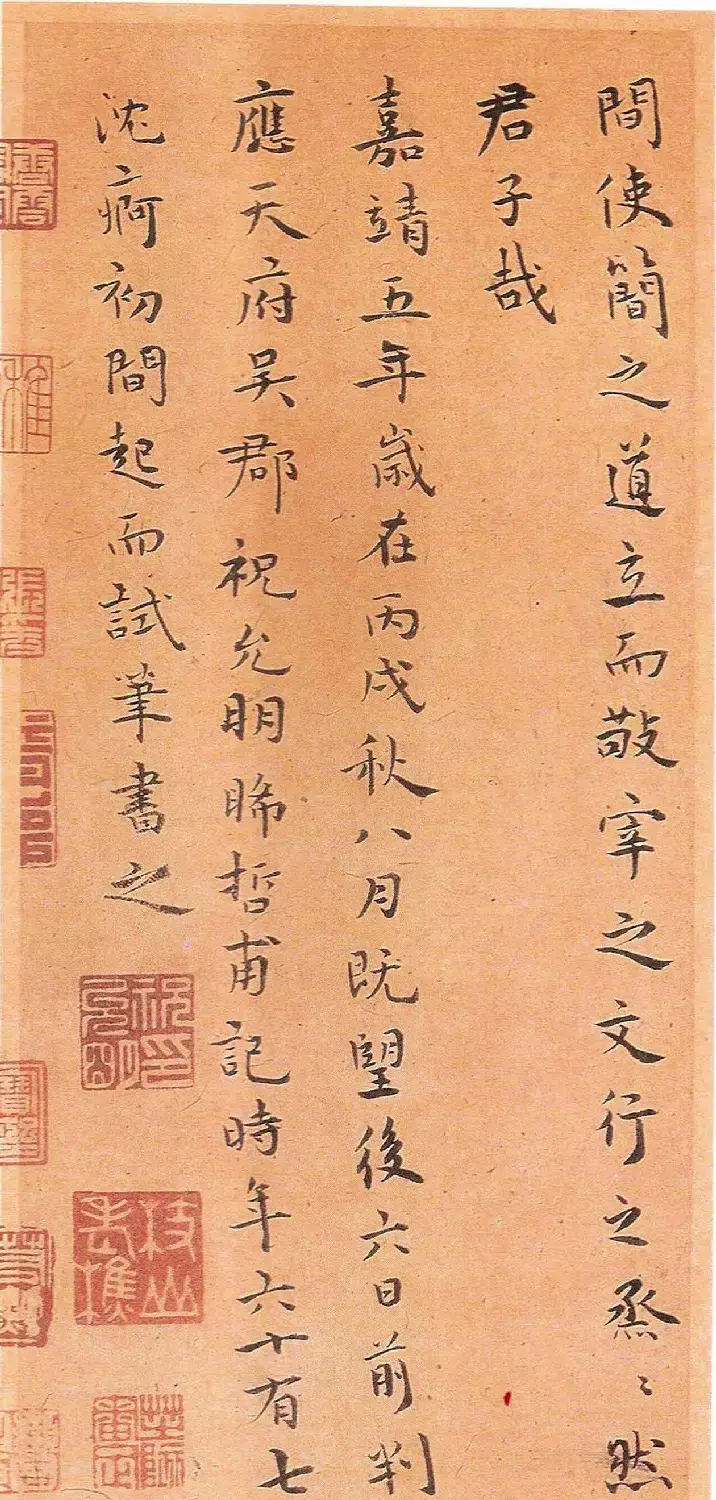 間使簡之道立而敬宰之文行之烝〻然
君子哉
嘉靖五年歲在丙戌秋八月既望後六日前判
應天府吳郡祝允明晞哲甫記時年六十有七
沈痾初間起而試筆書之
祝允明印
枝山老樵